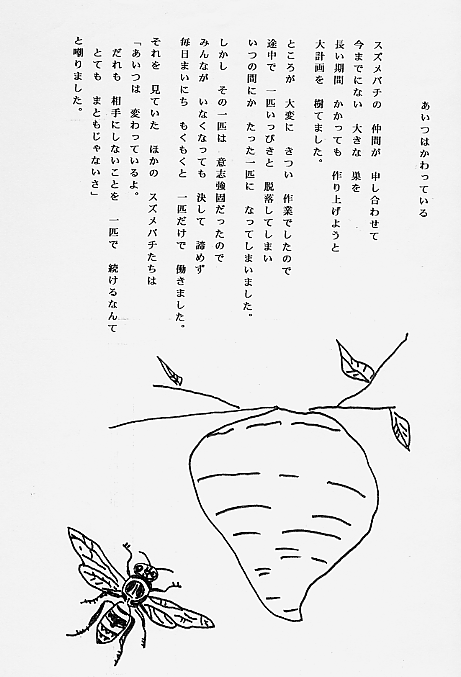 あいつはかわっている
スズメバチの 仲間が 申し合わせて
今までにない 大きな 巣を
長い期間 かかっても 作り上げようと
大計画を 樹てました。
ところが 大変に きつい 作業でしたので
途中で 一匹いっぴきと 脱落してしまい
いつの間にか たった一匹に なってしまいました。
しかし その一匹は 意志強固だったので
みんなが いなくなっても 決して 諦めず
毎日まいにち もくもくと 一匹だけで 働きました。
それを 見ていた ほかの スズメバチたちは
「あいつは 変わっているよ。
だれも 相手にしないことを 一匹で 続けるなんて
とても まともじゃないさ」
と嘲りました。